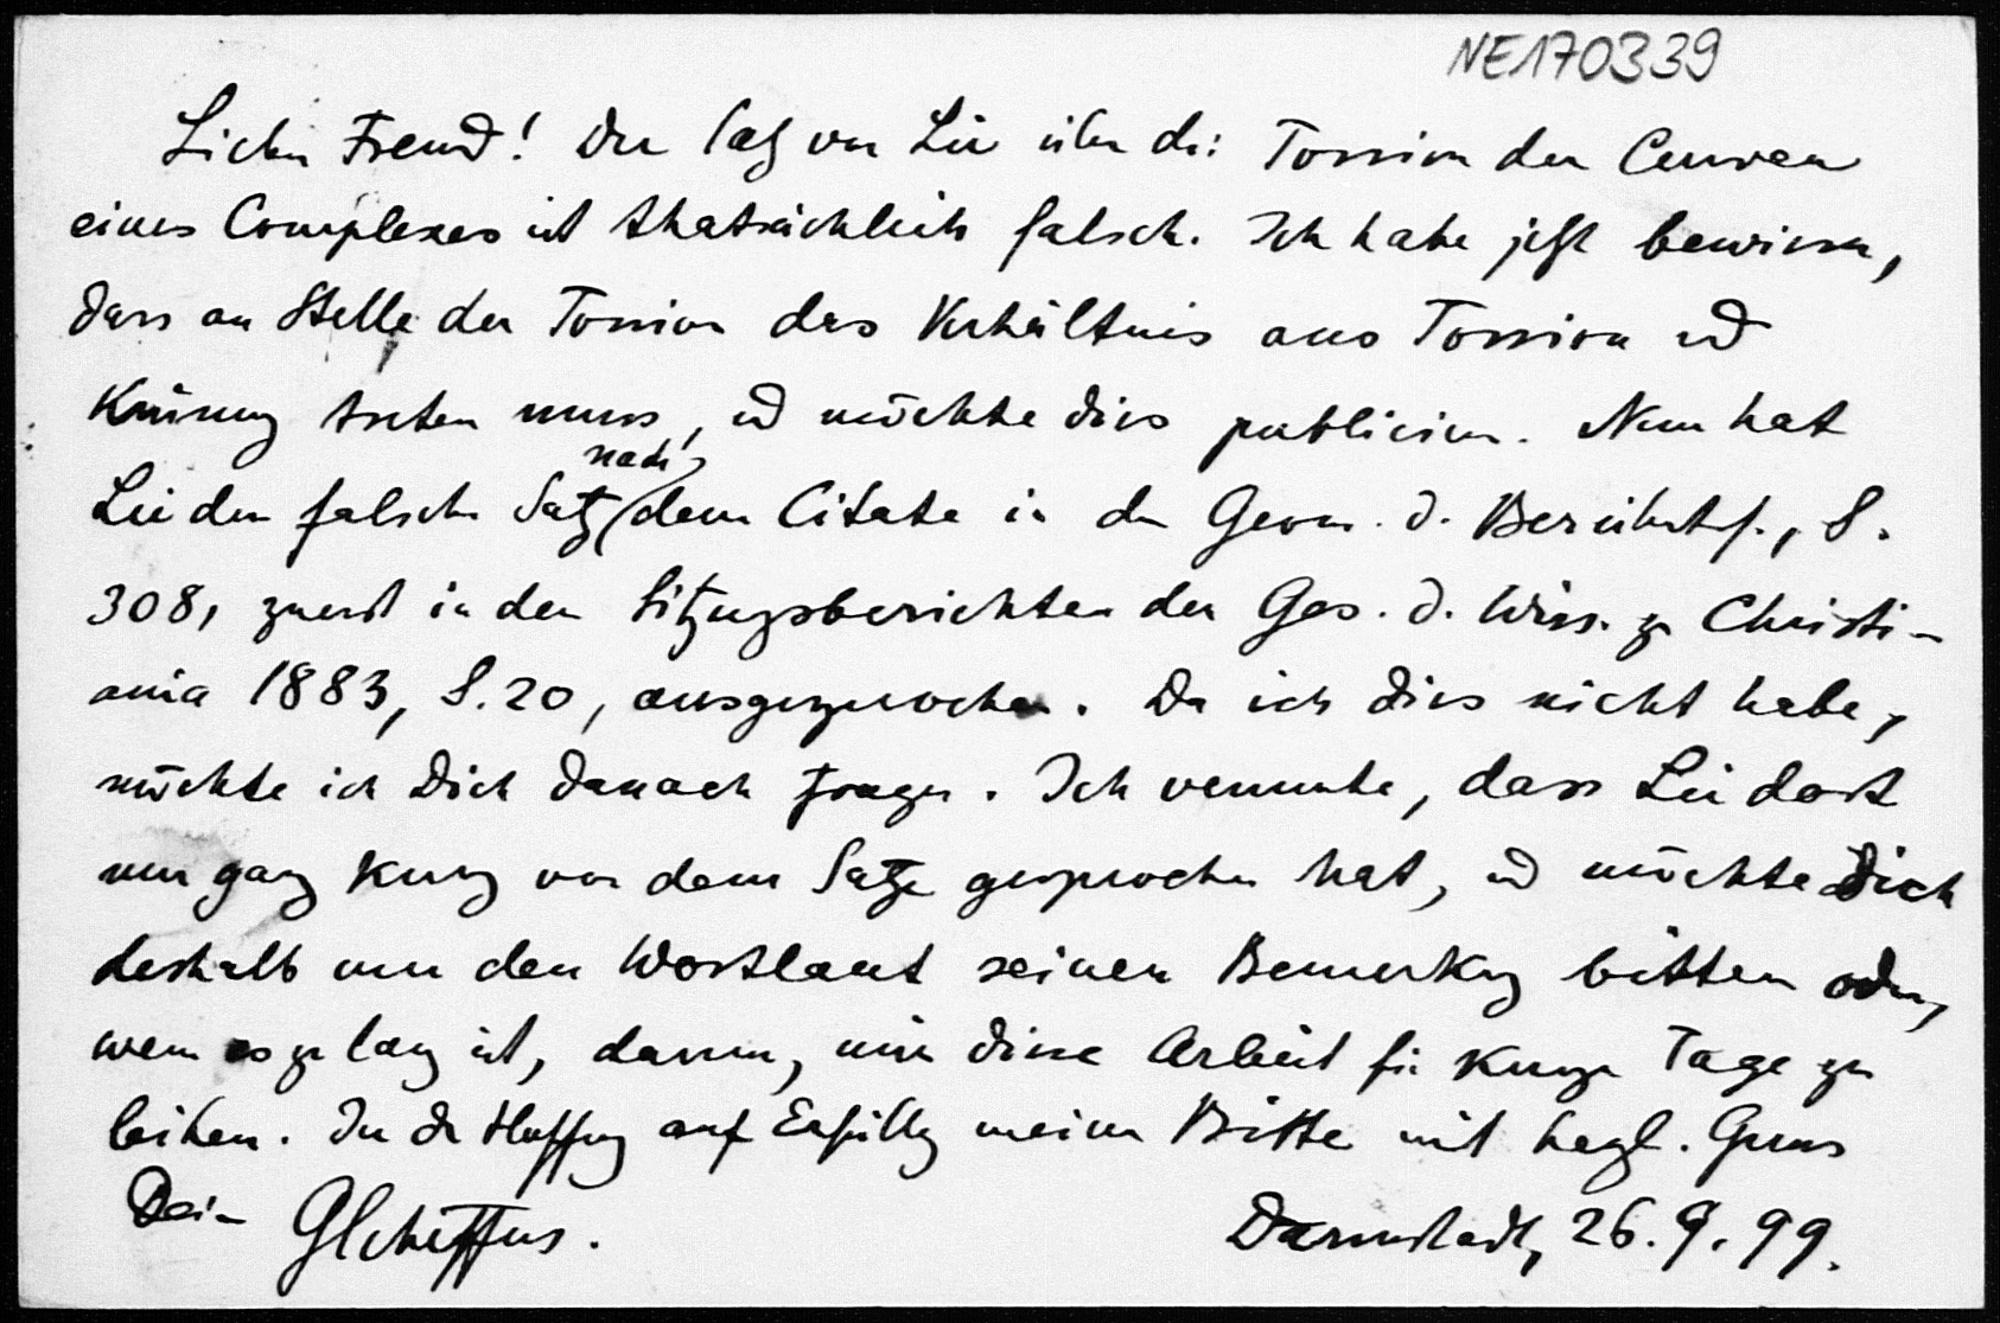 NE170339
Lieber Freund! Der Satz von Lie über die Torsion der Curven
eines Complexes ist thatsächlich falsch. Ich habe jetzt bewiesen,
dass an Stelle der Torsion das Verhältnis aus Torsion und
Krümung treten muss, und möchte dies publicieren. Nun hat
Lie den falschen Satz nach dem Citate in der Geom. d. Berührtsf., S.
308, zuerst in den Sitzungsberichten der Ges. d. Wiss. zu Christi-
ania 1883, S. 20, ausgesprochen. Da ich dies nicht habe,
möchte ich Dich danach fragen. Ich vermute, dass Lie dort
nur ganz kurz von dem Satze gesprochen hat, und möchte Dich
deshalb um den Wortlaut seiner Bemerkung bitten oder,
wenn es zu lang ist, darum, mir diese Arbeit für kurze Tage zu
leihen. In der Hoffnung auf Erfüllung meiner Bitte mit herzl. Gruss
Dein GScheffers.
Darmstadt, 26. 9. 99.